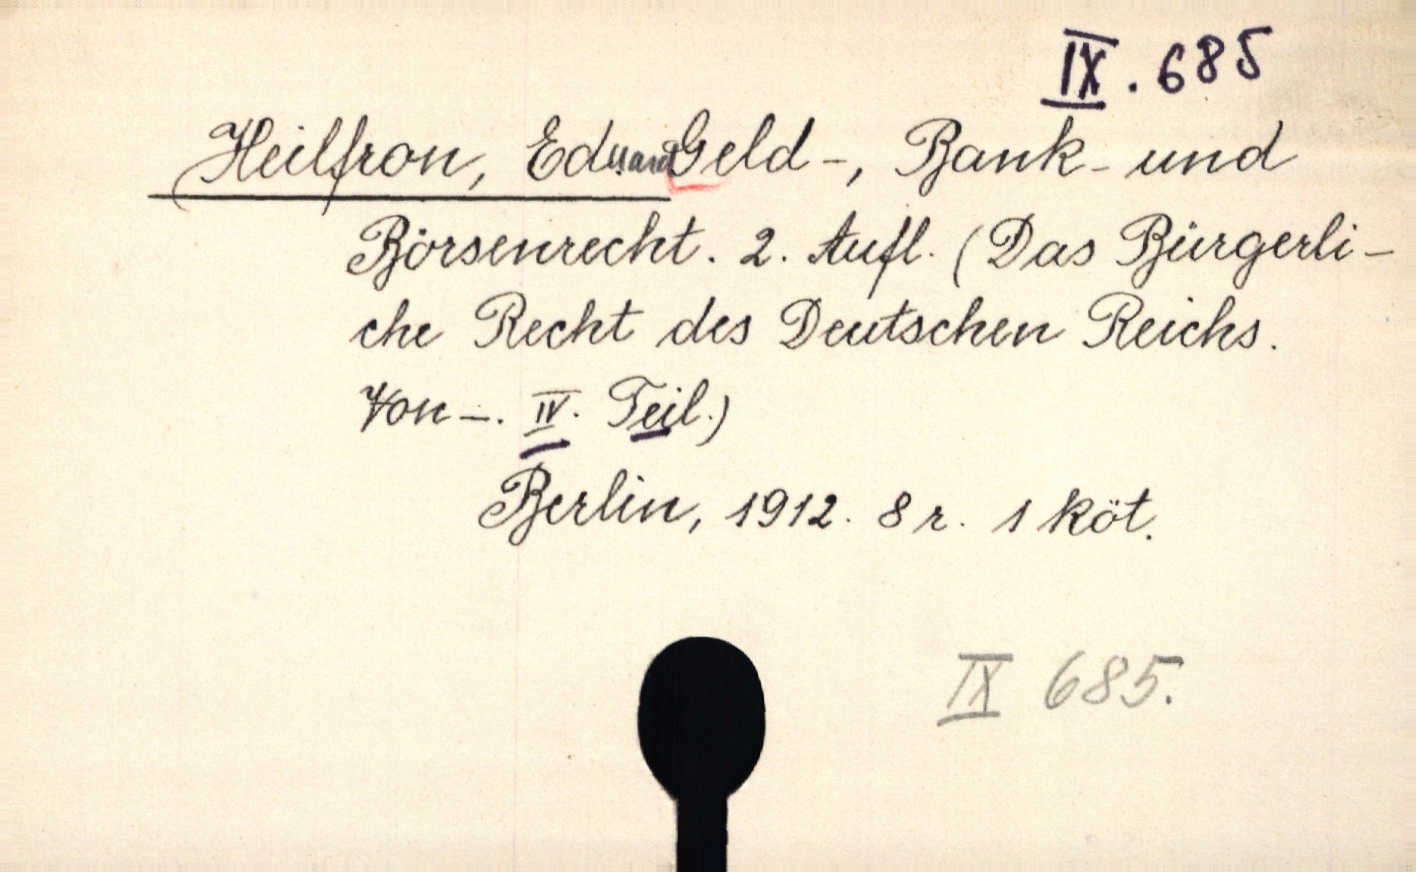 IX. 685
Heilfron, Eduard Geld-, Bank- und
Börsenrecht. 2. Aufl. (Das Bürgerli-
che Recht des Deutschen Reichs.
Von —. IV. Teil.)
Berlin, 1912. 8 r. 1 köt.
IX 685.